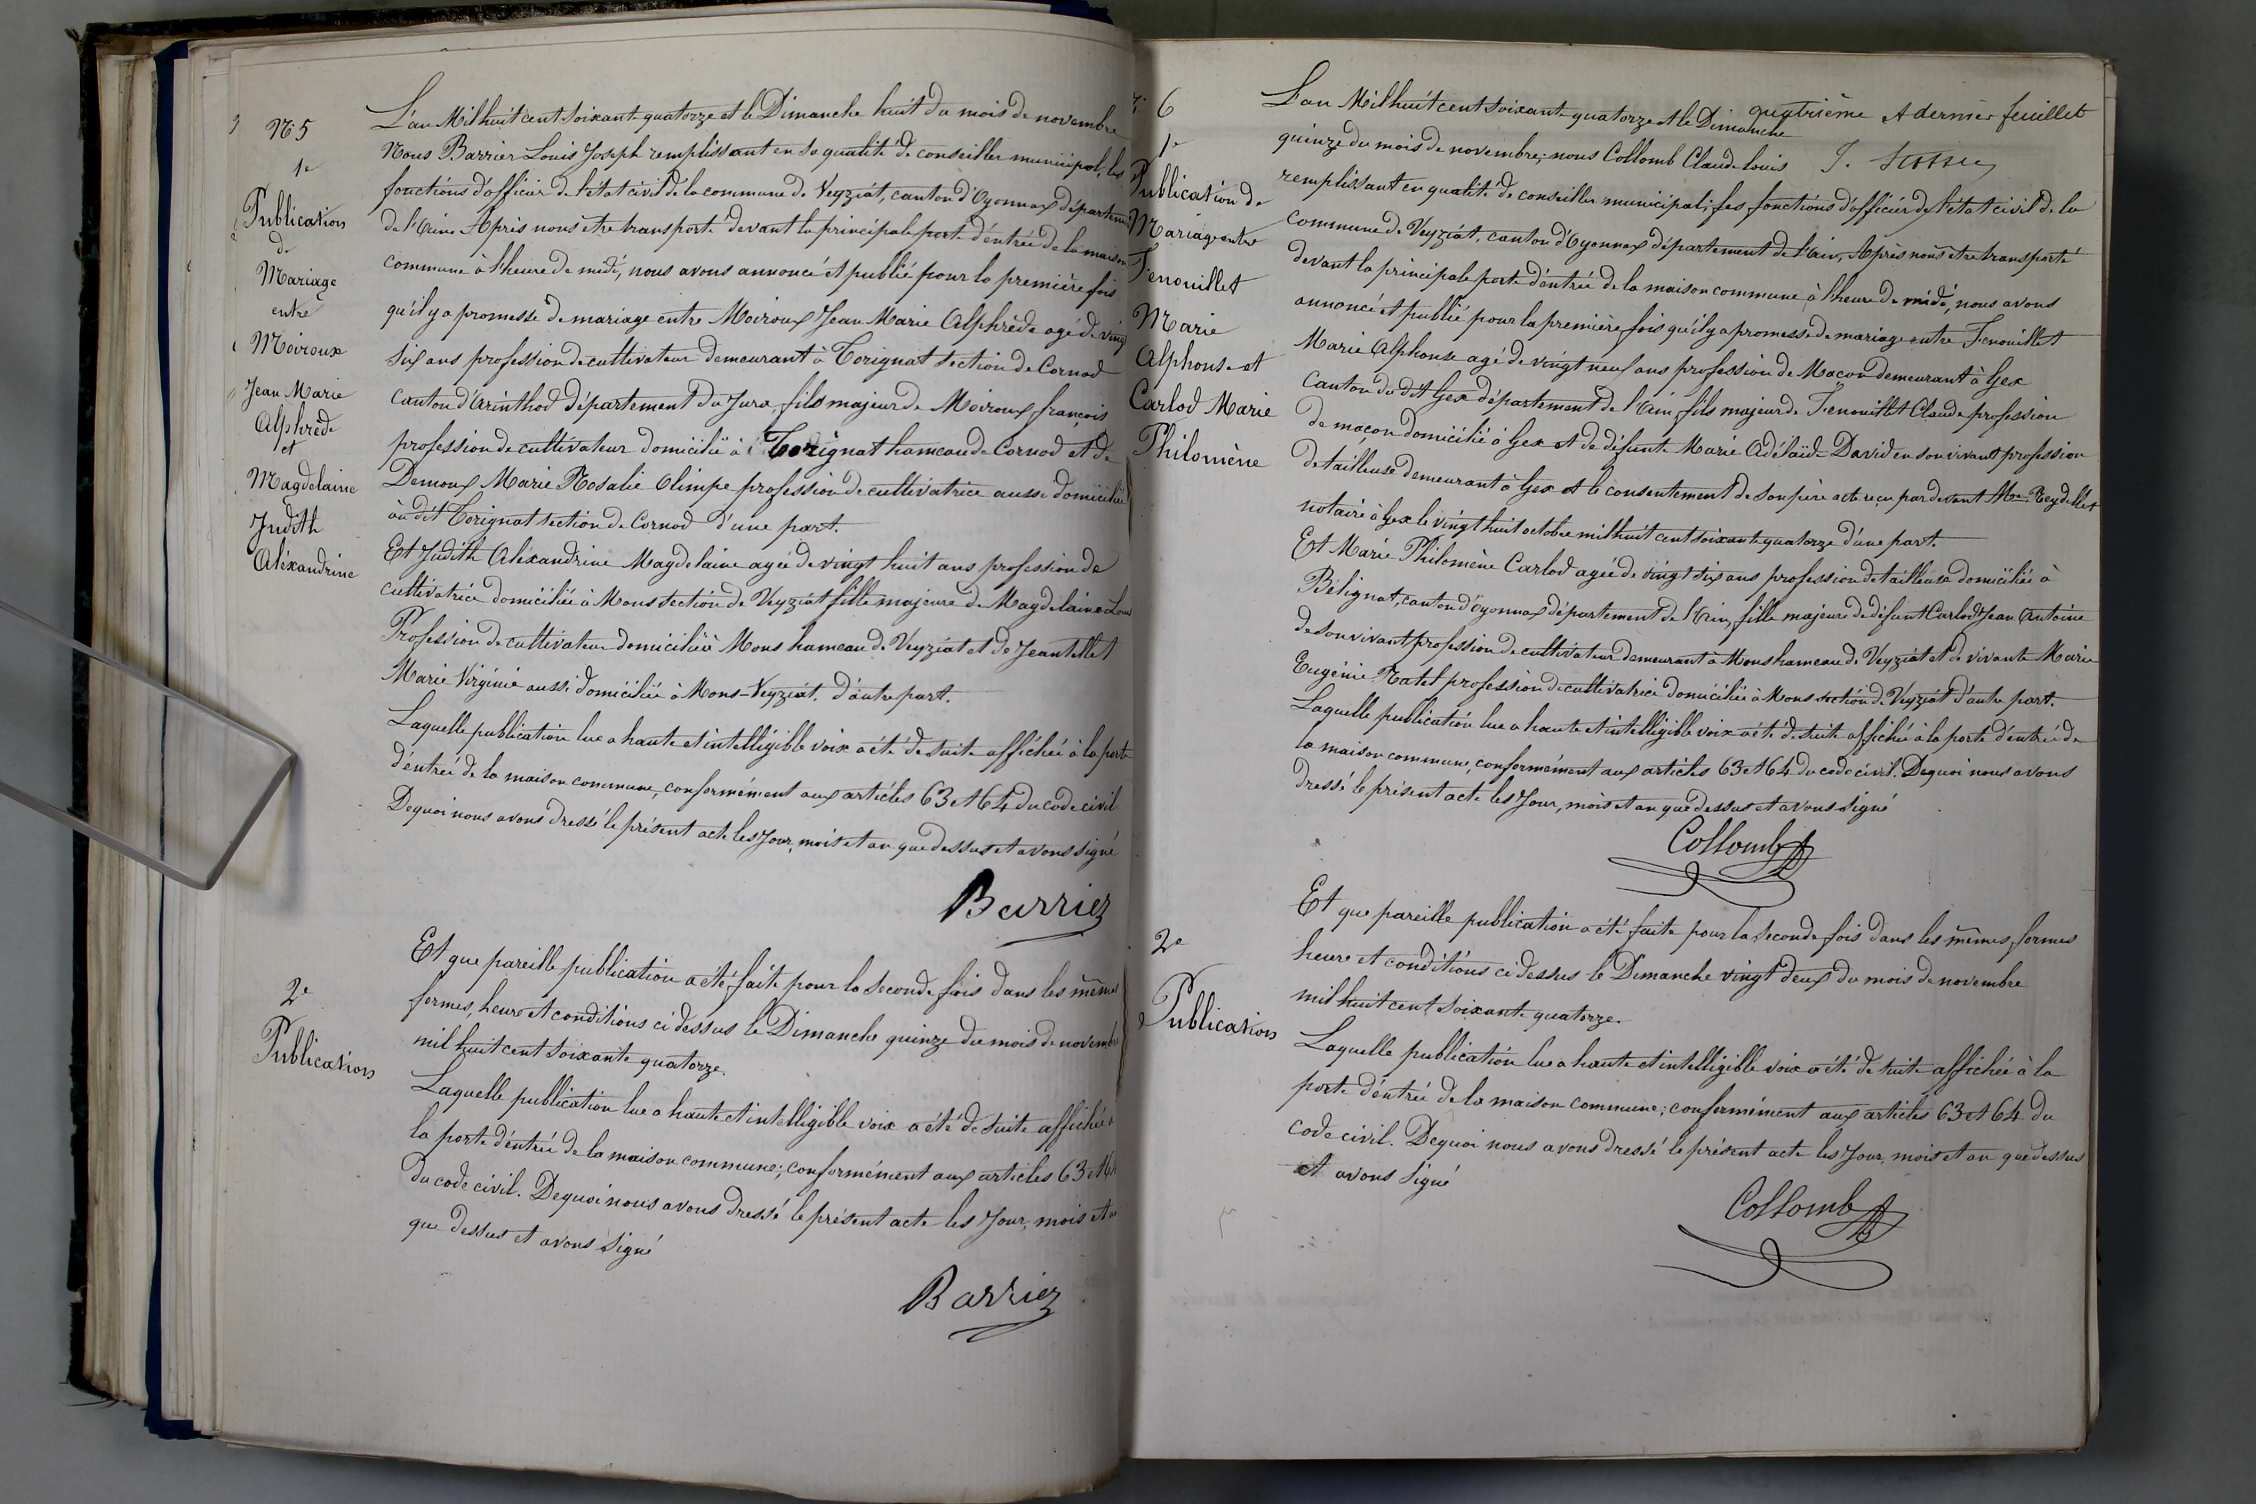 N° 5
1e
Publication
de
Mariage
entre
Moiroux
Jean Marie
Alphrède
et
Magdelaine
Judith
Aléxandrine
L'an Mil huit cent soixante quatorze et le Dimanche huit du mois de novembre
Nous Barrier Louis Joseph remplissant en sa qualité de conseiller municipal, les
fonctions d'officier de l'état civil de la commune de Veyziat, canton d'Oyonnax départeme
de l'Ain Après nous être transporté devant la principale porte d'entrée de la maison
commune à l'heure de midi, nous avons annoncé et publié pour la première fois
qu'il y a promesse de mariage entre Moiroux Jean Marie Alphrède agé de vingt
six ans profession de cultivateur demeurant à Torignat section de Cornod
canton d'Arinthod département du Jura, fils majeur de Moiroux françois
profession de cultivateur domicilié à Torignat hameau de Cornod et de
Demoux Marie Rosalie Olimpe profession de cultivatrice aussi domiciliée
au dit Torignat section de Cornod d'une part.
Et Judith Aléxandrine Magdelaine agée de vingt huit ans profession de
cultivatrice domiciliée à Mons section de Veyziat fille majeure de Magdelaine Louis
Profession de cultivateur domicilié à Mons hameau de Veyziat et de Jeantellet
Marie Virginie aussi domiciliée à Mons-Veyziat. d'autre part.
Laquelle publication lue a haute et intelligible voix a été de suite affichée à la porte
d'entrée de la maison commune, conformément aux articles 63 et 64 du code civil
Dequoi nous avons dressé le présent acte les Jour, mois et an que dessus et avons signé
Barrier
2e
Publication
Et que pareille publication a été faite pour la seconde fois dans les mêmes
formes, heure et conditions ci dessus le Dimanche quinze du mois de novembre
mil huit cent soixante quatorze.
Laquelle publication lue a haute et intelligible voix a été de suite affichée à
la porte d'entrée de la maison commune; conformément aux articles 63 et 64
du code civil. Dequoi nous avons dressé le présent acte les Jour, mois et an
que dessus et avons signé
Barrier
quatrième et dernier feuillet
6
1e
Publication de
Mariage entre
Fenouillet
Marie
Alphonse et
Carlod Marie
Philomène
L'an Mil huit cent soixante quatorze et le Dimanche
quinze du mois de novembre; nous Collomb Claude Louis
remplissant en qualité de conseiller municipal; les fonctions d'officier de l'état civil de la
commune de Veyziat, canton d'Oyonnax département de l'Ain, Après nous être transporté
devant la principale porte d'entrée de la maison commune, à l'heure de midi, nous avons
annoncé et publié pour la première fois qu'il y a promesse de mariage entre Fenouillet
Marie Alphonse agé de vingt neuf ans profession de Maçon demeurant à Gex
canton du dit Gex département de l'Ain, fils majeur de Fenouillet Claude profession
de maçon domicilié à Gex et de défunte Marie Adélaïde David en son vivant profession
de tailleuse demeurant à Gex et le consentement de son père acte reçu par devant Me Reydellet
notaire à Gex le vingt huit octobre mil huit cent soixante quatorze d'une part.
Et Marie Philomène Carlod agée de vingt six ans profession de tailleuse domiciliée à
Bélignat, canton d'Oyonnax département de l'Ain, fille majeure de défunt Carlod Jean Antoine
de son vivant profession de cultivateur demeurant à Mons hameau de Veyziat et de vivante Marie
Eugénie Ratel profession de cultivatrice domiciliée à Mons section de Veyziat d'autre part.
Laquelle publication lue a haute et intelligible voix a été de suite affichée à la porte d'entrée de
la maison commune, conformément aux articles 63 et 64 du code civil. Dequoi nous avons
dressé le présent acte les Jour, mois et an que dessus et avons signé
Collomb
2e
Publication
Et que pareille publication a été faite pour la seconde fois dans les mêmes formes
heure et conditions ci dessus le Dimanche vingt deux du mois de novembre
mil huit cent soixante quatorze.
Laquelle publication lue a haute et intelligible voix a été de suite affichée à la
porte d'entrée de la maison commune; conformément aux articles 63 et 64 du
code civil. Dequoi nous avons dressé le présent acte les Jour, mois et an que dessus
et avons signé
Collomb